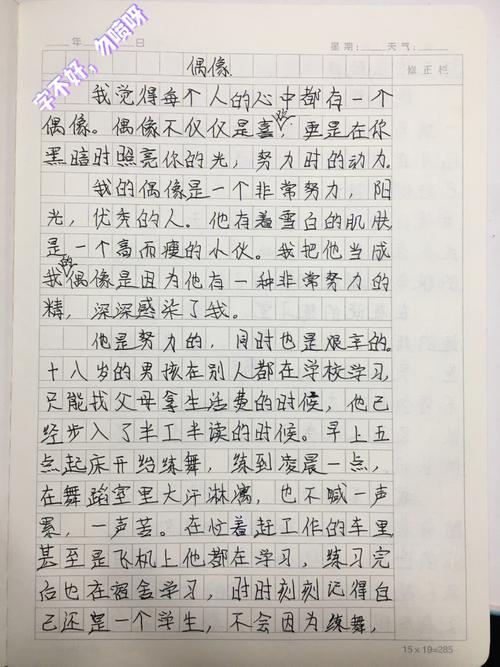 年 日 星期: 天气:
字不好，勿喷呀
偶像 修正栏
我觉得每个人的心中都有一个
偶像。偶像不仅仅是喜欢，更是在你
黑暗时照亮你的光，努力时的动力.
我的偶像是一个非常努力，阳
光，优秀的人。他有着雪白的肌肤
是一个高而瘦的小伙。我把他当成
我的偶像是因为他有一种非常努力的
精，深深感染了我。
他是努力的，同时也是艰辛的.
十八岁的男孩在别人都在学校学习
只能找父母拿生活费的时候，他已
经步入了半工半读的时候。早上五
点起床开始练舞，练到凌晨一点，
在舞蹈室里大汗淋漓，也不喊一声
累，一声苦。在忙着赶工作的车里
甚至是飞机上他都在学习，练习完
后也在宿舍学习，时时刻刻记得自
己还是一个学生，不会因为练舞，
15×19=285